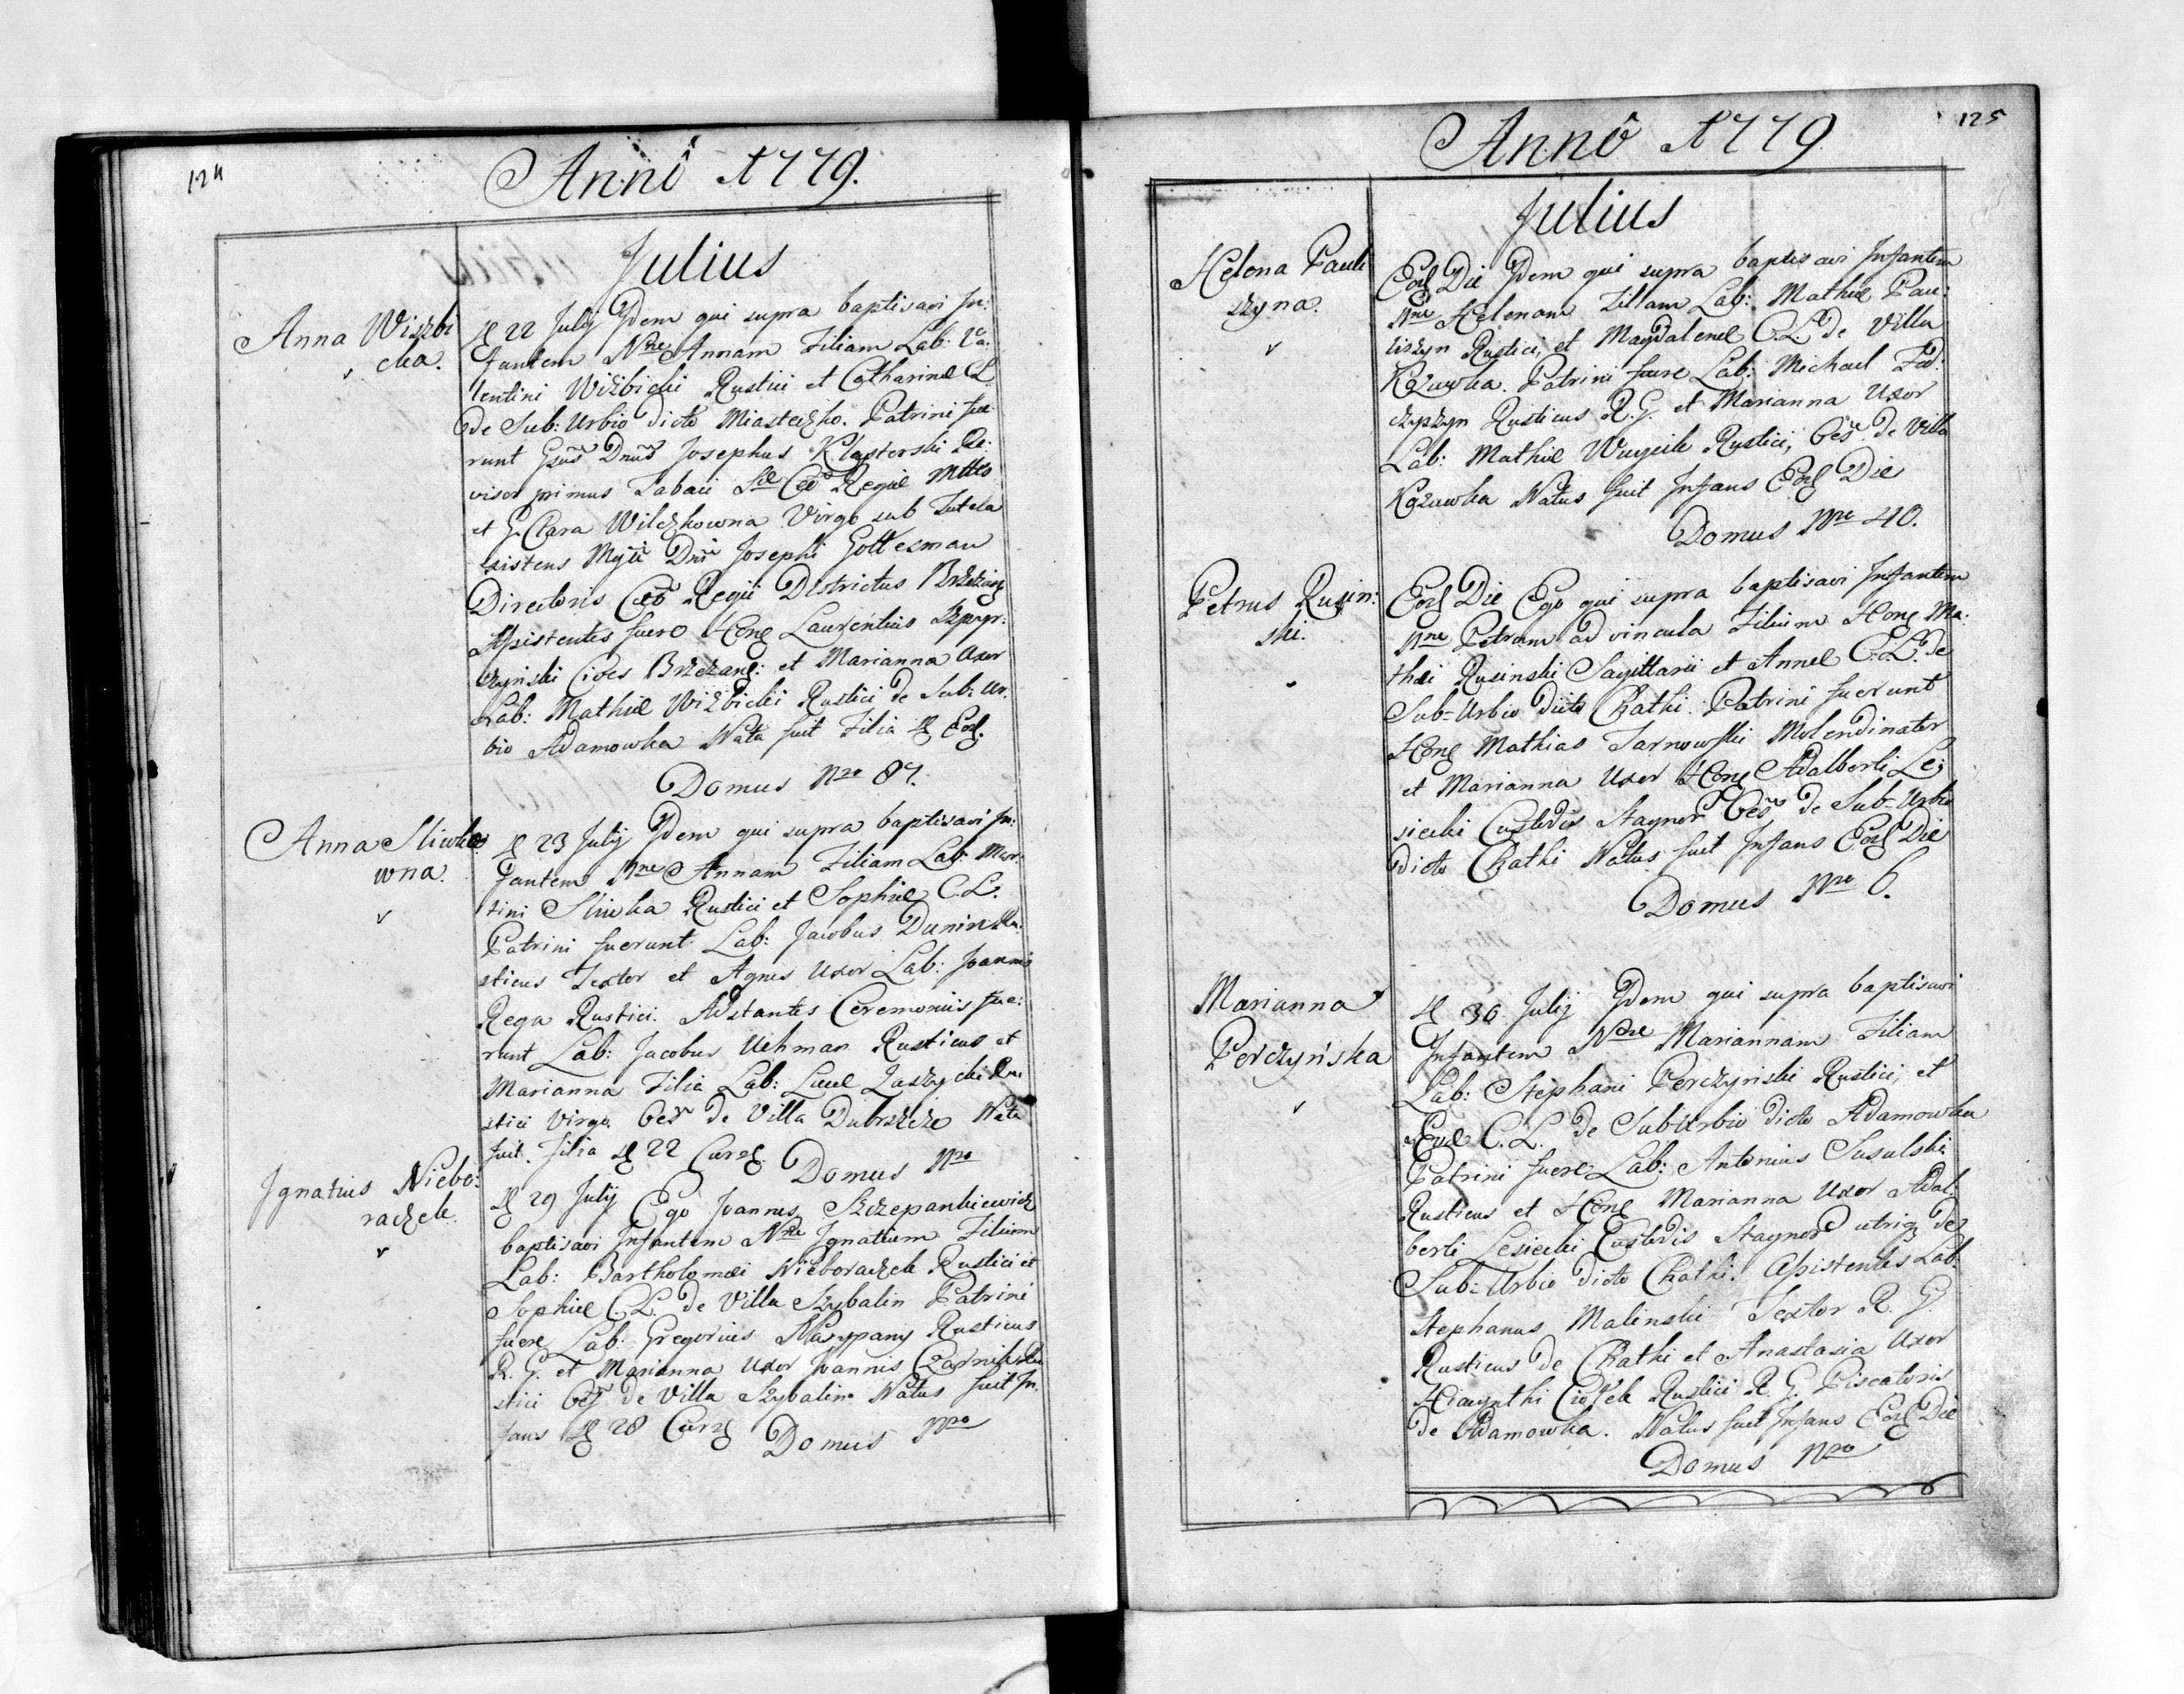 124
Annô 1779.
Julius
Anna Wiszbi
cka.
D 22 July Idem qui supra baptisavi In:
fantem Nne Annam Filiam Lab: Va:
lentini Wiżbicki Rustici et Catharinæ C.L.
de Sub: Urbio dicto Miasteczko. Patrini fue
runt Gsus Dnus Josephus Klasterski Re:
visor primus Tabaci Sæ Cæo Regiæ Mttis
et G. Clara Wilczkowna Virgo sub Tutela
existens Mgci Dni Josephi Gottesman
Directoris Cæo Regii Districtus Brzeżan
Assistentes fuere Hon Laurentius Szpyr:
czynski Cives Brzezan: et Marianna Uxor
Lab: Mathiæ Wiżbicki Rustici de Sub: Ur:
bio Adamowka Nata fuit Filia D Eod.
Domus Nro 87.
Anna Sliwko
wna.
D 23 July Idem qui supra baptisavi In:
fantem Nne Annam Filiam Lab: Mar:
tini Sliwka Rustici et Sophiæ C.L.
Patrini fuerunt Lab: Jacobus Dunin Ru:
sticus Textor et Agnes Uxor Lab: Joannis
Rega Rustici. Adstantes Ceremoniis fue:
runt Lab: Jacobus Uchman Rusticus et
Marianna Filia Lab: Lucæ Zaszycki Ru
stici Virgo. Oes de Villa Dubrszcze Nata
fuit Filia D 22 Curr. Domus Nro
Ignatius Niebo:
raczek.
D 29 July Ego Joannes Szczepankiewicz
baptisavi Infantem Nne Ignatium Filium
Lab: Bartholomæi Nieboraczek Rustici et
Sophiæ C.L. de Villa Szybalin Patrini
fuere Lab: Gregorius Rusticus
R. G. et Marianna Uxor Joannis Czarnik Ru
stici Oes de Villa Szybalin. Natus fuit In:
fans D 28 Curr Domus Nro
125
Annô 1779
Julius
Helena Pauli
szyna.
Eod Die Idem qui supra baptisavi Infantem
Nne Helenam Filiam Lab: Mathiæ Pau:
liszyn Rustici, et Magdalenæ C.L. de Villa
Kozuwka. Patrini fuere Lab: Michael Fed:
czyszyn Rusticus R. G. et Marianna Uxor
Lab: Mathiæ Woycik Rustici, Oes de Villa
Kozuwka Natus fuit Infans Eod Die
Domus Nro 40.
Petrus Rusin:
ski.
Eod Die Ego qui supra baptisavi Infantem
Nne Petrum ad vincula Filium Hon Ma:
thæi Rusinski Sagittarii et Annæ C.L. de
Sub-Urbio dicto Chatki. Patrini fuerunt
Hon Mathias Tarnowski Molendinator
et Marianna Uxor Hon Adalberti Le:
siecki Custodis Stagnor Oes de Sub-Urbio
dicto Chatki Natus fuit Infans Eod Die
Domus Nro 6.
Marianna
Perczyńska
D 30 July Idem qui supra baptisavi
Infantem Nne Mariannam Filiam
Lab: Stephani Perczyński Rustici, et
Evæ C.L. de SubUrbio dicto Adamowka
Patrini fuere Lab: Antonius Susulski
Rusticus et Hon Marianna Uxor Adal:
berti Lesiecki Custodis Stagnor utriq de
Sub-Urbio dicto Chatki. Assistentes Lab:
Stephanus Malinski Textor R. G.
Rusticus de Chatki et Anastasia Uxor
Hiacynthi Ciołek Rustici R. G. Piscatoris
de Adamowka. Natus fuit Infans Eod Die
Domus Nro